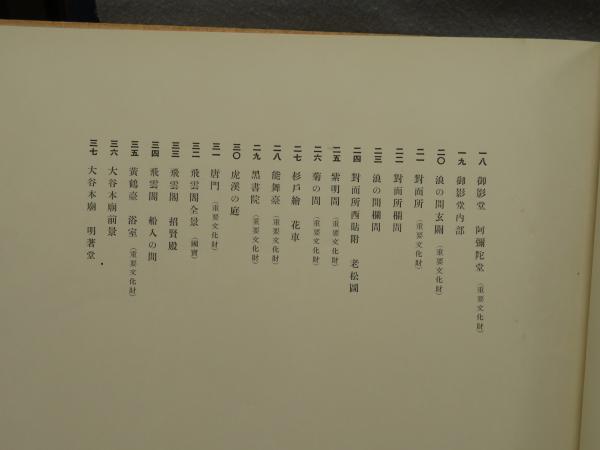 一八 御影堂 阿彌陀堂（重要文化財）
一九 御影堂内部
二〇 浪の間玄關（重要文化財）
二一 對面所（重要文化財）
二二 對面所欄間
二三 浪の間欄間
二四 對面所西貼附 老松圖
二五 紫明間（重要文化財）
二六 菊の間（重要文化財）
二七 杉戸繪 花車
二八 能舞臺（重要文化財）
二九 黑書院（重要文化財）
三〇 虎溪の庭
三一 唐門（重要文化財）
三二 飛雲閣全景（國寶）
三三 飛雲閣 招賢殿
三四 飛雲閣 船入の間
三五 黄鶴臺 浴室（重要文化財）
三六 大谷本廟前景
三七 大谷本廟 明著堂